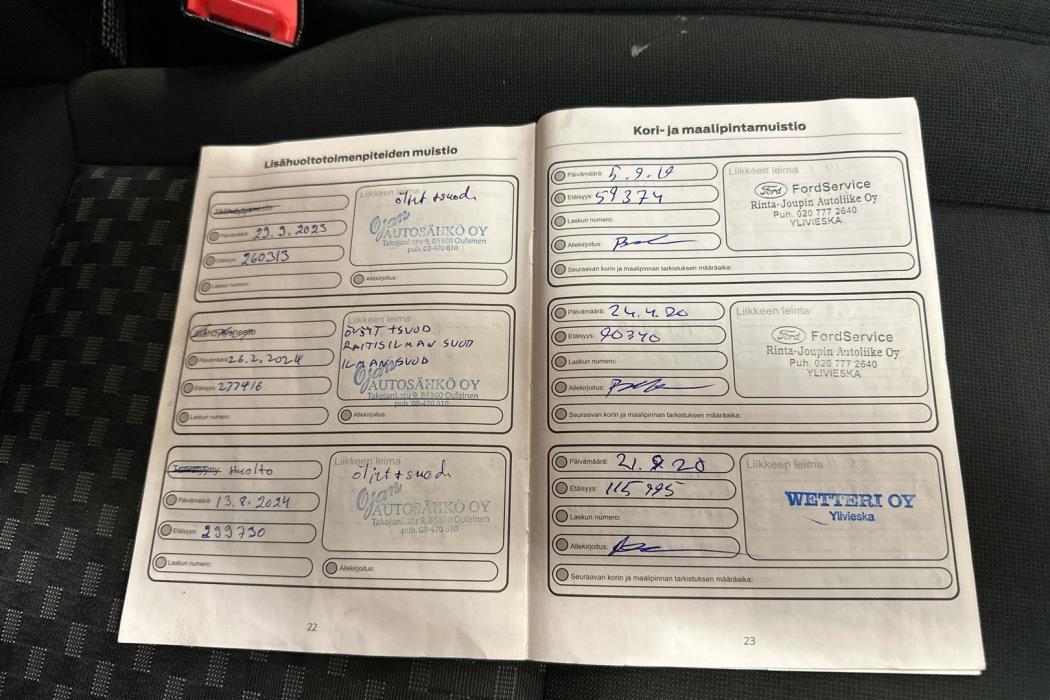 Lisähuoltotoimenpiteiden muistio
Jäähdytysneste
Liikkeen leima
öljyt + suod.
Päivämäärä: 29.3.2023
Etäisyys: 260313
Ojan
AUTOSÄHKÖ OY
Takojankatu 9, 86300 Oulainen
puh. 08-470 810
Laskun numero:
Allekirjoitus:
Jäähdytysneste
Liikkeen leima
ÖLJYT + SUOD
RAITISILMAN SUOD
ILMANSUOD
Päivämäärä: 26.2.2024
Etäisyys: 277416
Ojan
AUTOSÄHKÖ OY
Takojankatu 9, 86300 Oulainen
puh. 08-470 810
Laskun numero:
Allekirjoitus:
Huolto
Liikkeen leima
öljyt + suod.
Päivämäärä: 13.8.2024
Etäisyys: 293730
Ojan
AUTOSÄHKÖ OY
Takojankatu 9, 86300 Oulainen
puh. 08-470 810
Laskun numero:
Allekirjoitus:
22
Kori- ja maalipintamuistio
Päivämäärä: 5.9.19
Etäisyys: 59374
Laskun numero:
Allekirjoitus:
Liikkeen leima
Ford FordService
Rinta-Joupin Autoliike Oy
Puh. 020 777 2640
YLIVIESKA
Seuraavan korin ja maalipinnan tarkistuksen määräaika:
Päivämäärä: 24.4.20
Etäisyys: 90370
Laskun numero:
Allekirjoitus:
Liikkeen leima
Ford FordService
Rinta-Joupin Autoliike Oy
Puh. 020 777 2640
YLIVIESKA
Seuraavan korin ja maalipinnan tarkistuksen määräaika:
Päivämäärä: 21.9.20
Etäisyys: 115995
Laskun numero:
Allekirjoitus:
Liikkeen leima
WETTERI OY
Ylivieska
Seuraavan korin ja maalipinnan tarkistuksen määräaika:
23